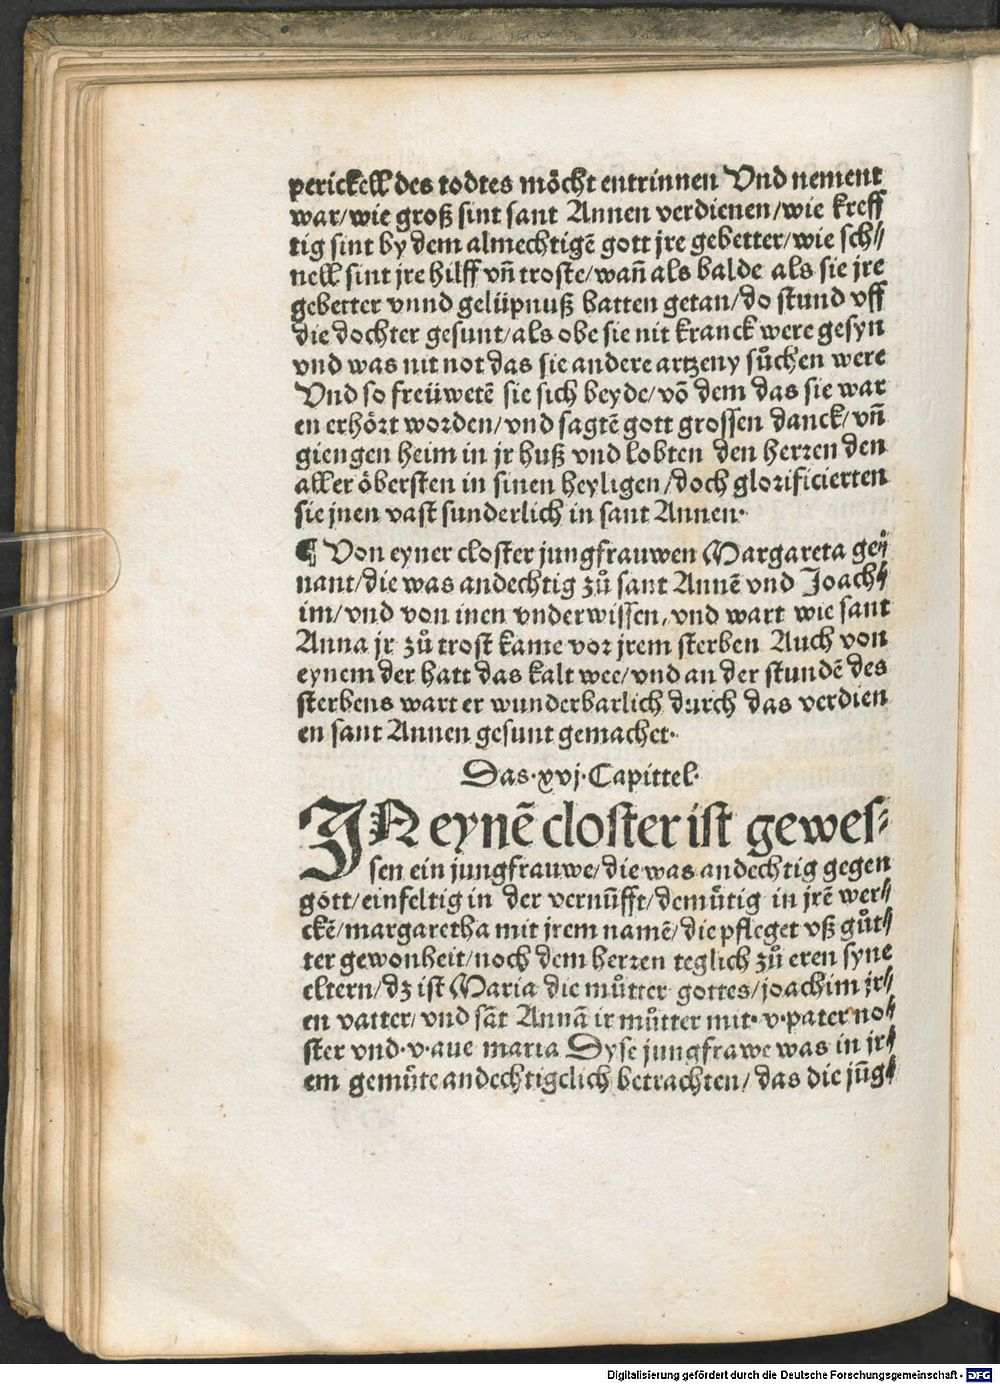 perickell des todtes möcht entrinnen Vnd nement
war/wie groß sint sant Annen verdienen/wie kreff
tig sint by dem almechtigē gott jre gebetter/wie sch⸗
nell sint jre hilff vn̄ troste/wan̄ als balde als sie jre
gebetter vnnd gelüpnuß hatten getan/do stund vff
die dochter gesunt/als obe sie nit kranck were gesyn
vnd was nit not das sie andere artzeny sůchen were
Vnd so freüwetē sie sich beyde/vō dem das sie war
en erhört worden/vnd sagtē gott grossen danck/vn̄
giengen heim in jr huß vnd lobten den herren den
aller öbersten in sinen heyligen/doch glorificierten
sie jnen vast sunderlich in sant Annen.
¶ Von eyner closter jungfrauwen Margareta ge⸗
nant/die was andechtig zů sant Annē vnd Joach⸗
im/vnd von inen vnderwissen, vnd wart wie sant
Anna jr zů trost kame vor jrem sterben Auch von
eynem der hatt das kalt wee/vnd an der stundē des
sterbens wart er wunderbarlich durch das verdien
en sant Annen gesunt gemachet.
Das.xvj.Capittel.
IN eynē closter ist gewes⸗
sen ein jungfrauwe/die was andechtig gegen
gott/einfeltig in der vernūfft/demůtig in jrē wer⸗
ckē/margaretha mit jrem namē/die pfleget vß gůt⸗
ter gewonheit/noch dem herren teglich zů eren syne
eltern/dz ist Maria die můtter gottes/joachim jr⸗
en vatter/vnd sāt Annā ir můtter mit.v.pater no⸗
ster vnd.v.aue maria Dyse jungfrawe was in jr⸗
em gemůte andechtigclich betrachten/das die jūg⸗
Digitalisierung gefördert durch die Deutsche Forschungsgemeinschaft - DFG